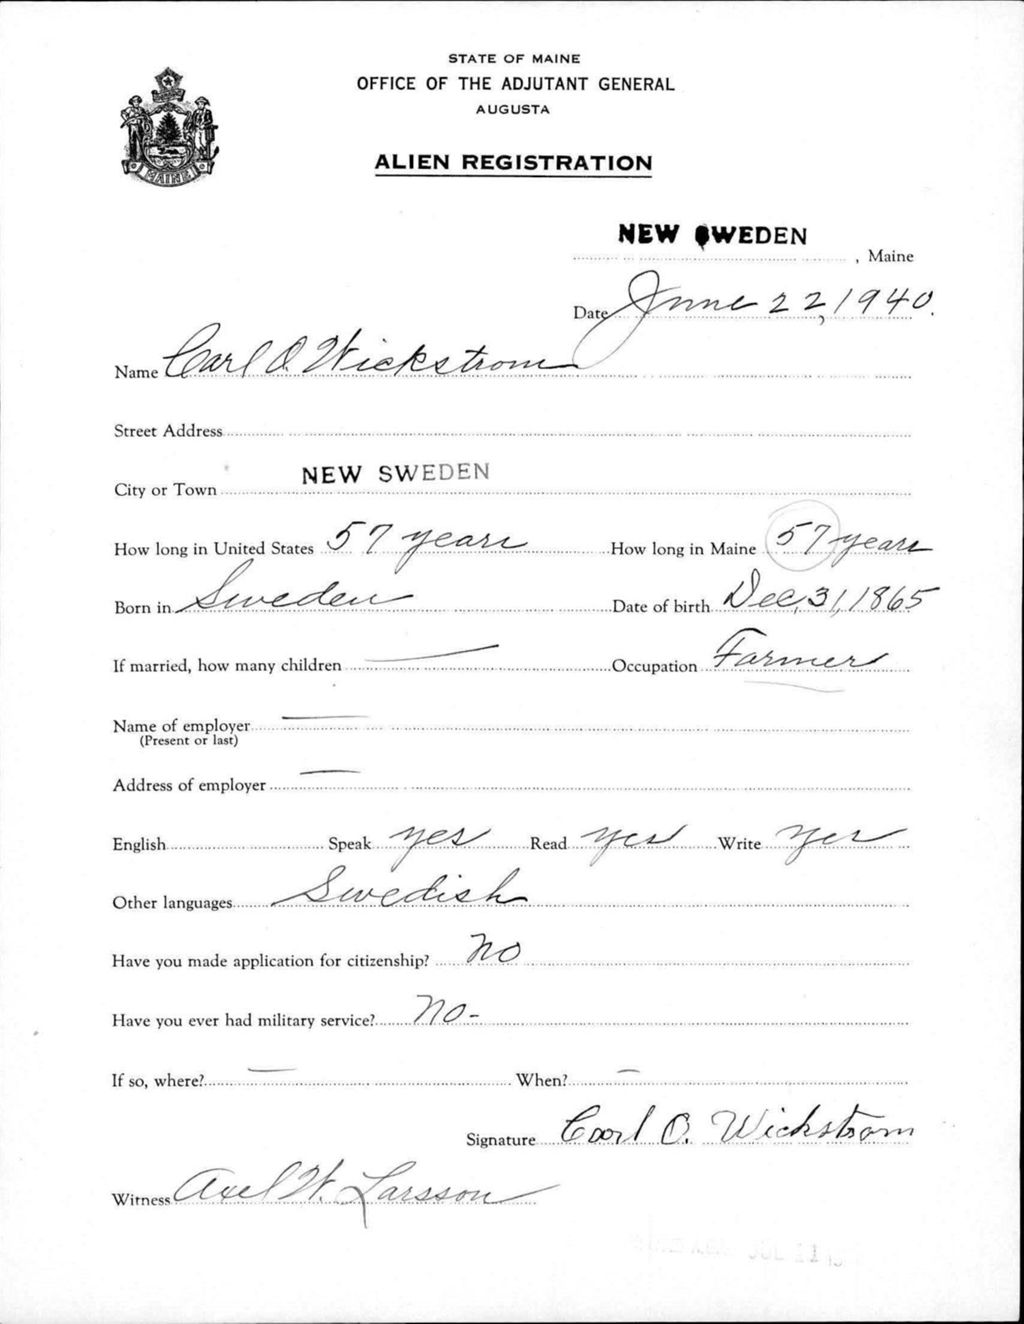 STATE OF MAINE
OFFICE OF THE ADJUTANT GENERAL
AUGUSTA
ALIEN REGISTRATION
MAINE
NEW SWEDEN
, Maine
Date June 22, 1940.
Name Carl O. Wickstrom
Street Address
City or Town NEW SWEDEN
How long in United States 57 years How long in Maine 57 years
Born in Sweden Date of birth Dec. 31, 1865
If married, how many children — Occupation Farmer
Name of employer —
(Present or last)
Address of employer —
English Speak yes Read yes Write yes
Other languages Swedish
Have you made application for citizenship? No
Have you ever had military service? No -
If so, where? — When? —
Signature Carl O. Wickstrom
Witness Axel W. Larsson